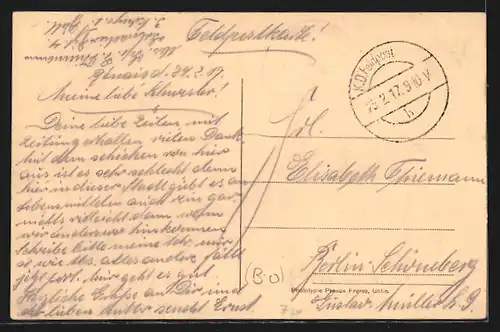 Feldpostkarte!
d. 24.2.17.
Meine liebe Schwester!
Deine lieben Zeilen mit
Zeitung erhalten vielen Dank
mit dem schicken von hier
aus ist es sehr schlecht denn
hier in dieser Stadt gibt es an
Lebensmitteln auch rein gar
nichts vielleicht dann wenn
wir anderswo hinkommen
Schreibe bitte meine Adr. nur
so wie Abs. alles andre fällt
jetzt fort. Mir geht es gut.
Herzliche Grüße an Dir und
der lieben Mutter sendet Ernst.
K.D. Feldpost
25.2.17. 9-10 V
h
Frl.
Elisabeth Thiemann
Berlin-Schöneberg
Gustav Müllerstr. 9.
(BO)
Phototypie Preaux Frères, Ghlin.